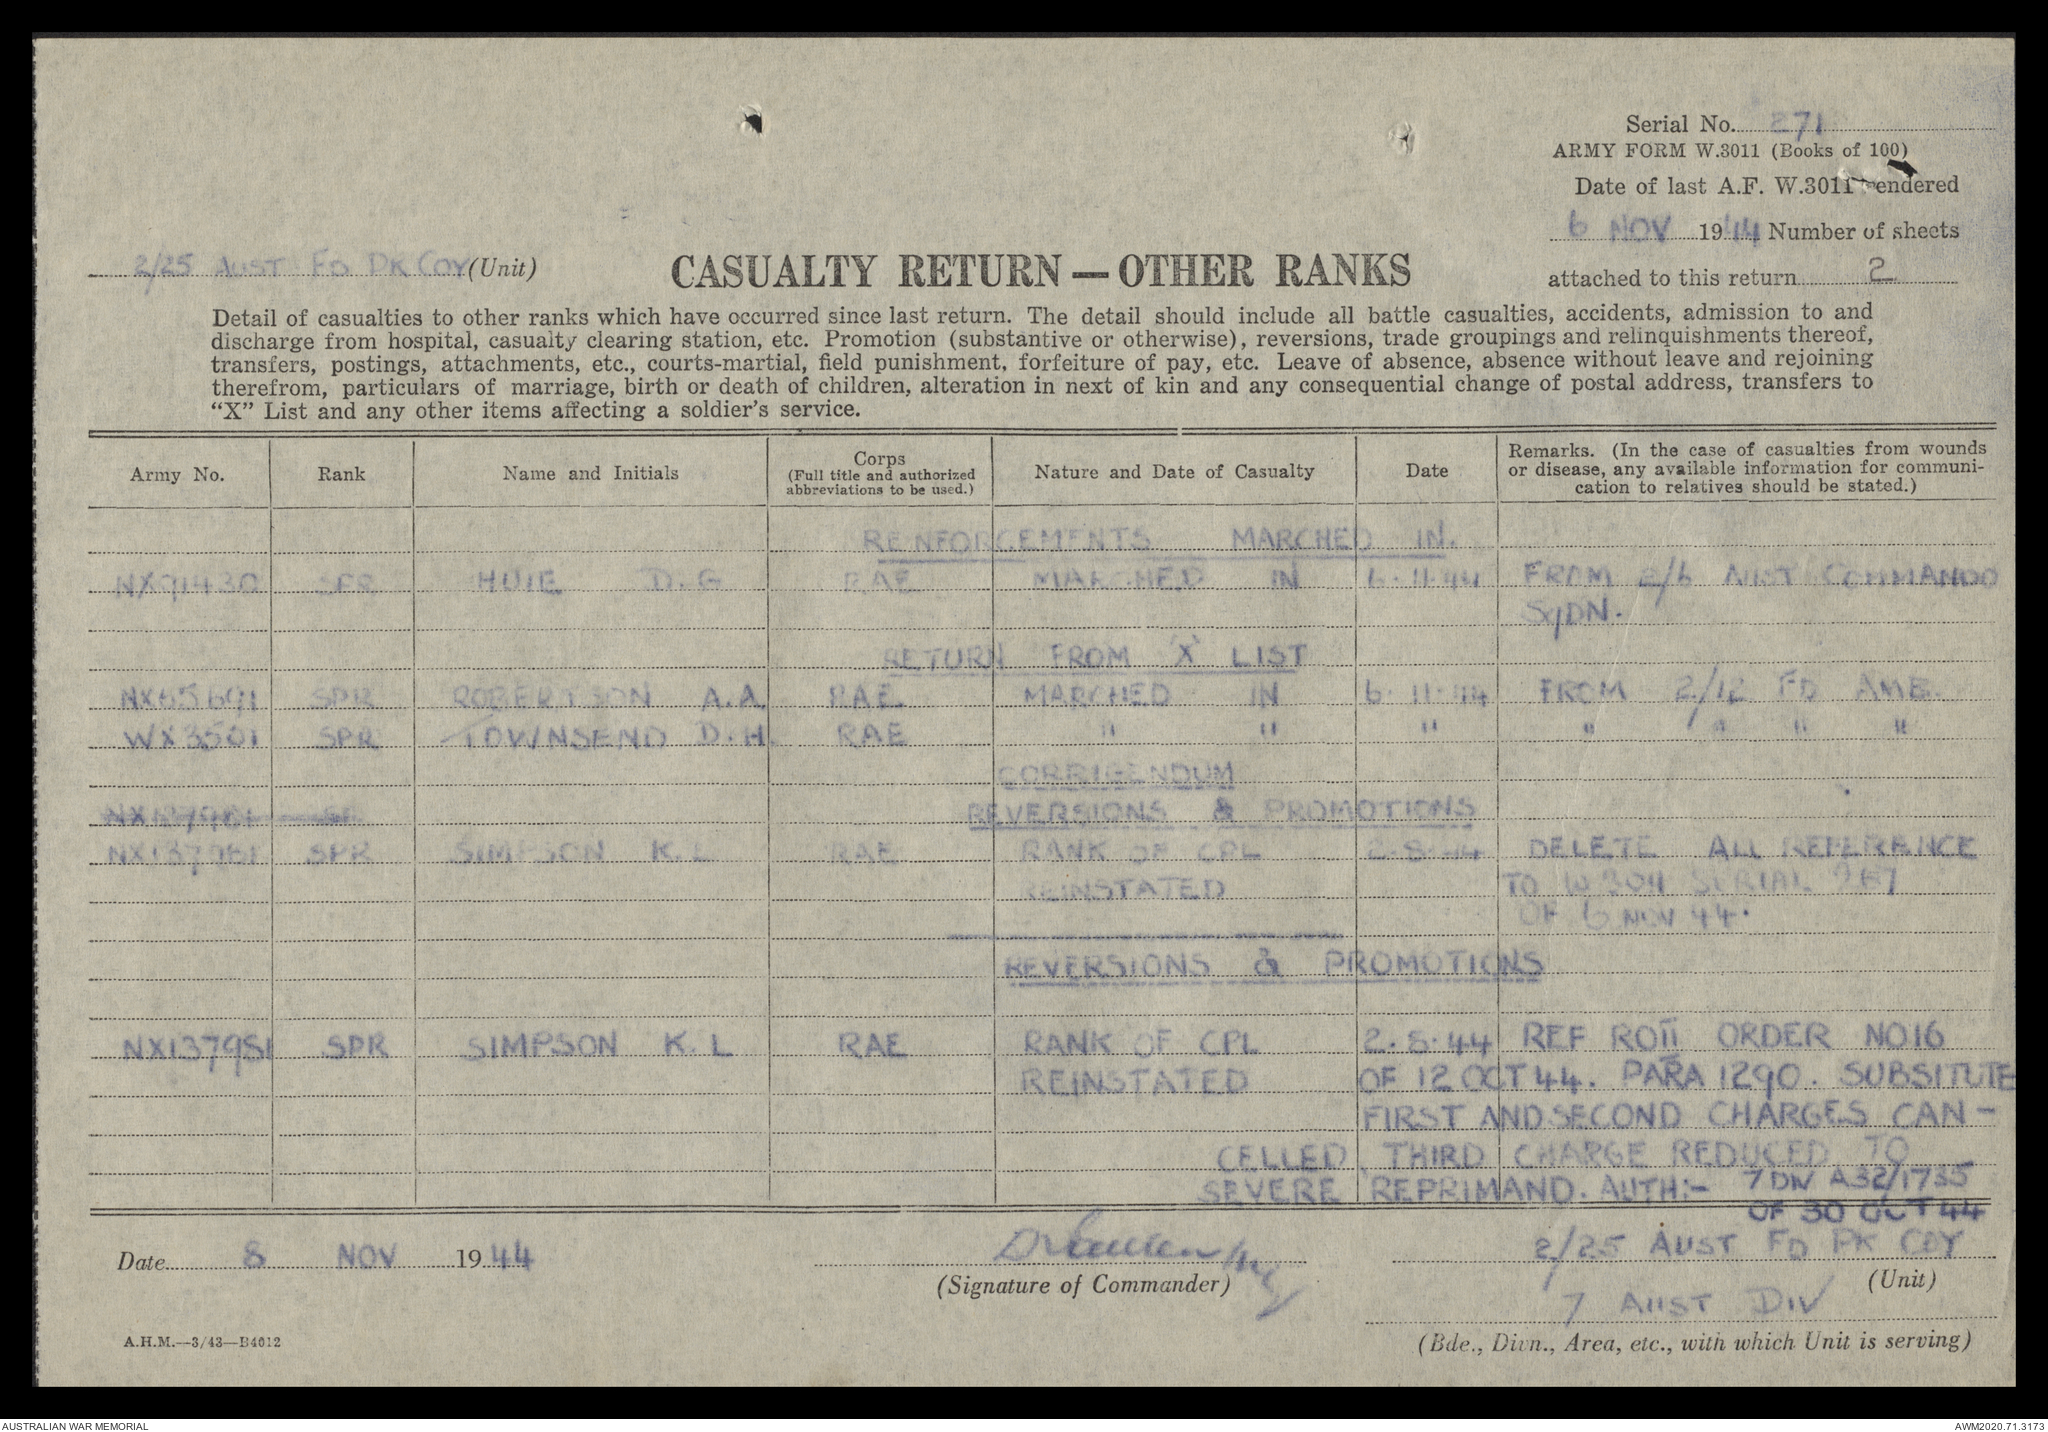 Serial No. 271
ARMY FORM W.3011 (Books of 100)
Date of last A.F. W.3011 rendered
6 NOV 1944 Number of sheets
attached to this return 2
2/25 AUST FD PK COY (Unit)
CASUALTY RETURN — OTHER RANKS
Detail of casualties to other ranks which have occurred since last return. The detail should include all battle casualties, accidents, admission to and
discharge from hospital, casualty clearing station, etc. Promotion (substantive or otherwise), reversions, trade groupings and relinquishments thereof,
transfers, postings, attachments, etc., courts-martial, field punishment, forfeiture of pay, etc. Leave of absence, absence without leave and rejoining
therefrom, particulars of marriage, birth or death of children, alteration in next of kin and any consequential change of postal address, transfers to
“X” List and any other items affecting a soldier’s service.
Army No. Rank Name and Initials Corps (Full title and authorized abbreviations to be used.) Nature and Date of Casualty Date Remarks. (In the case of casualties from wounds or disease, any available information for communication to relatives should be stated.)
REINFORCEMENTS MARCHED IN.
NX91430 SPR HUIE D.G RAE MARCHED IN 6.11.44 FROM 2/6 AUST COMMANDO
SqDN.
RETURN FROM 'X' LIST
NX65691 SPR ROBERTSON A.A. RAE MARCHED IN 6.11.44 FROM 2/12 FD AMB.
WX3501 SPR TOWNSEND D.H. RAE " " " " " " "
CORRIGENDUM
REVERSIONS & PROMOTIONS
NX137981 SPR SIMPSON K.L RAE RANK OF CPL 2.8.44 DELETE ALL REFERENCE
REINSTATED TO W3011 SERIAL 267
OF 6 NOV 44.
REVERSIONS & PROMOTIONS
NX137981 SPR SIMPSON K.L RAE RANK OF CPL 2.8.44 REF ROII ORDER NO16
REINSTATED OF 12 OCT 44. PARA 1290. SUBSITUTE
FIRST AND SECOND CHARGES CAN-
CELLED, THIRD CHARGE REDUCED TO
SEVERE REPRIMAND. AUTH:- 7 DIV A32/1735
OF 30 OCT 44
Date 8 NOV 1944
(Signature of Commander)
2/25 AUST FD PK COY
(Unit)
7 AUST DIV
(Bde., Divn., Area, etc., with which Unit is serving)
A.H.M.—3/43—B4612
AUSTRALIAN WAR MEMORIAL AWM2020.71.3173